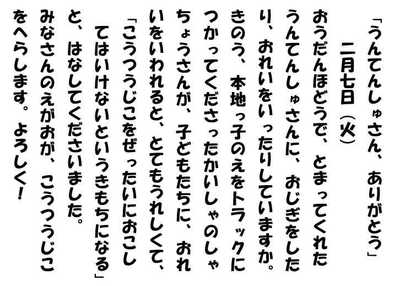 「うんてんしゅさん、ありがとう」
二月七日（火）
おうだんほどうで、とまってくれた
うんてんしゅさんに、おじぎをした
り、おれいをいったりしていますか。
きのう、本地っ子のえをトラックに
つかってくださったかいしゃのしゃ
ちょうさんが、子どもたちに、おれ
いをいわれると、とてもうれしくて、
「こうつうじこをぜったいにおこし
てはいけないというきもちになる」
と、はなしてくださいました。
みなさんのえがおが、こうつうじこ
をへらします。よろしく！